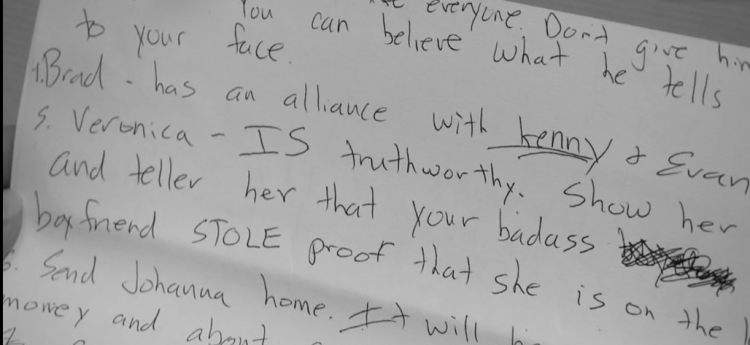 everyone. Don't give him
to your face. You can believe what he tells
4. Brad - has an alliance with kenny & Evan
5. Veronica - IS truthworthy. Show her
and teller her that your badass
boyfriend STOLE proof that she is on the
Send Johanna home. It will
money and about